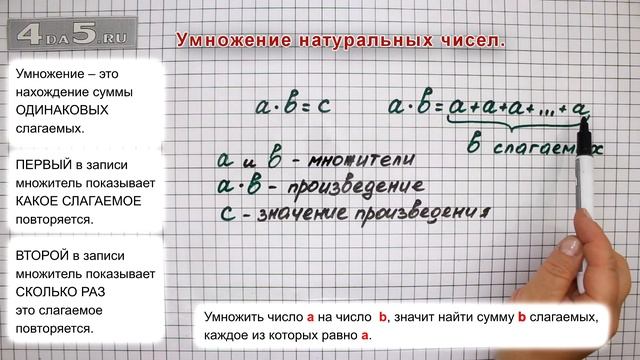 4DA5.RU
Умножение натуральных чисел.
Умножение – это
нахождение суммы
ОДИНАКОВЫХ
слагаемых.
ПЕРВЫЙ в записи
множитель показывает
КАКОЕ СЛАГАЕМОЕ
повторяется.
ВТОРОЙ в записи
множитель показывает
СКОЛЬКО РАЗ
это слагаемое
повторяется.
а · в = с
а · в = а + а + а + ... + а
в слагаемых
а и в - множители
а · в - произведение
с - значение произведения
Умножить число а на число b, значит найти сумму b слагаемых,
каждое из которых равно а.